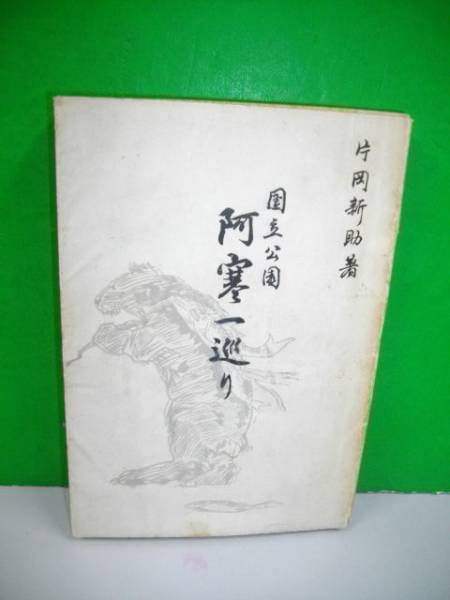 片岡新助著
国立公園
阿寒一巡り